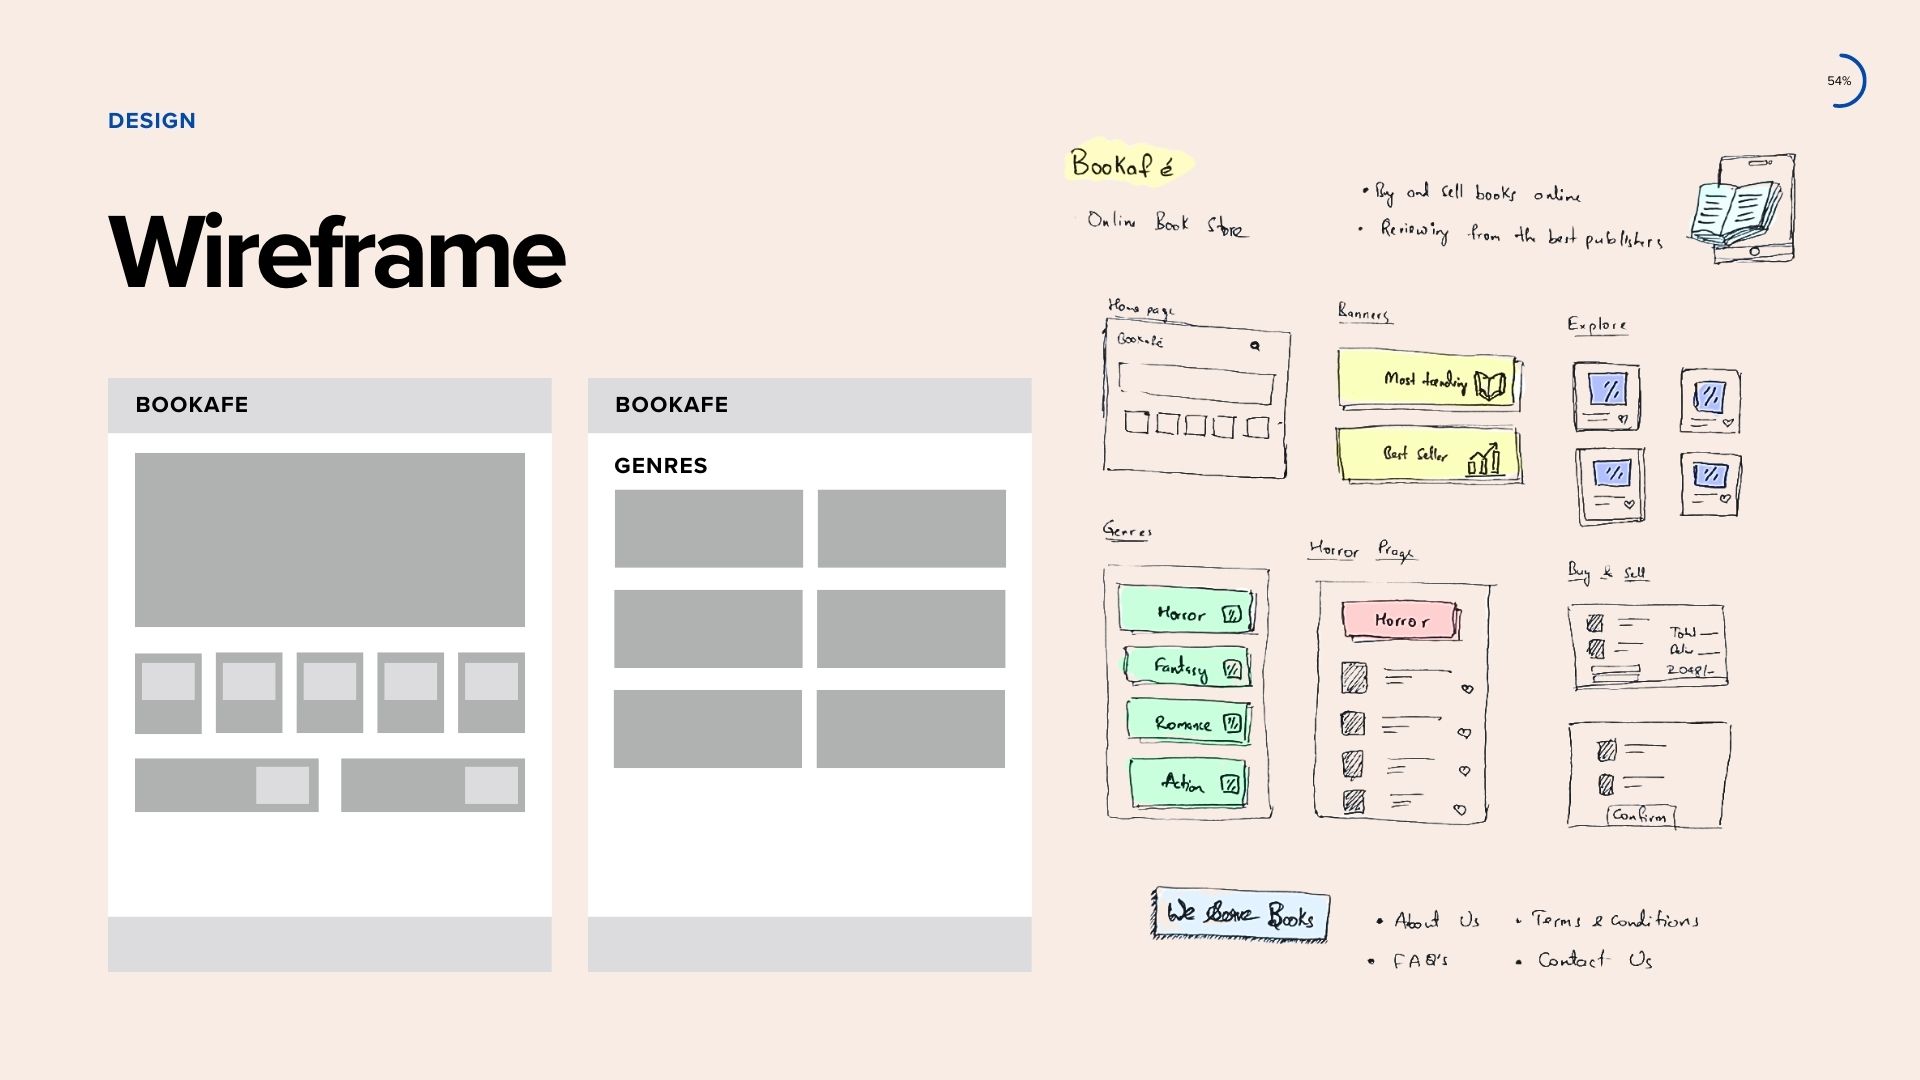 54%
DESIGN
Wireframe
BOOKAFE
BOOKAFE
GENRES
Bookafé
Online Book Store
• Buy and sell books online
• Reviewing from the best publishers
Home page
Bookafé
Banners
Most trending
Best Seller
Explore
Genres
Horror
Fantasy
Romance
Action
Horror Page
Horror
Buy & Sell
Total
2048/-
Confirm
We Books
• About Us
• Terms & conditions
• FAQ's
• Contact Us